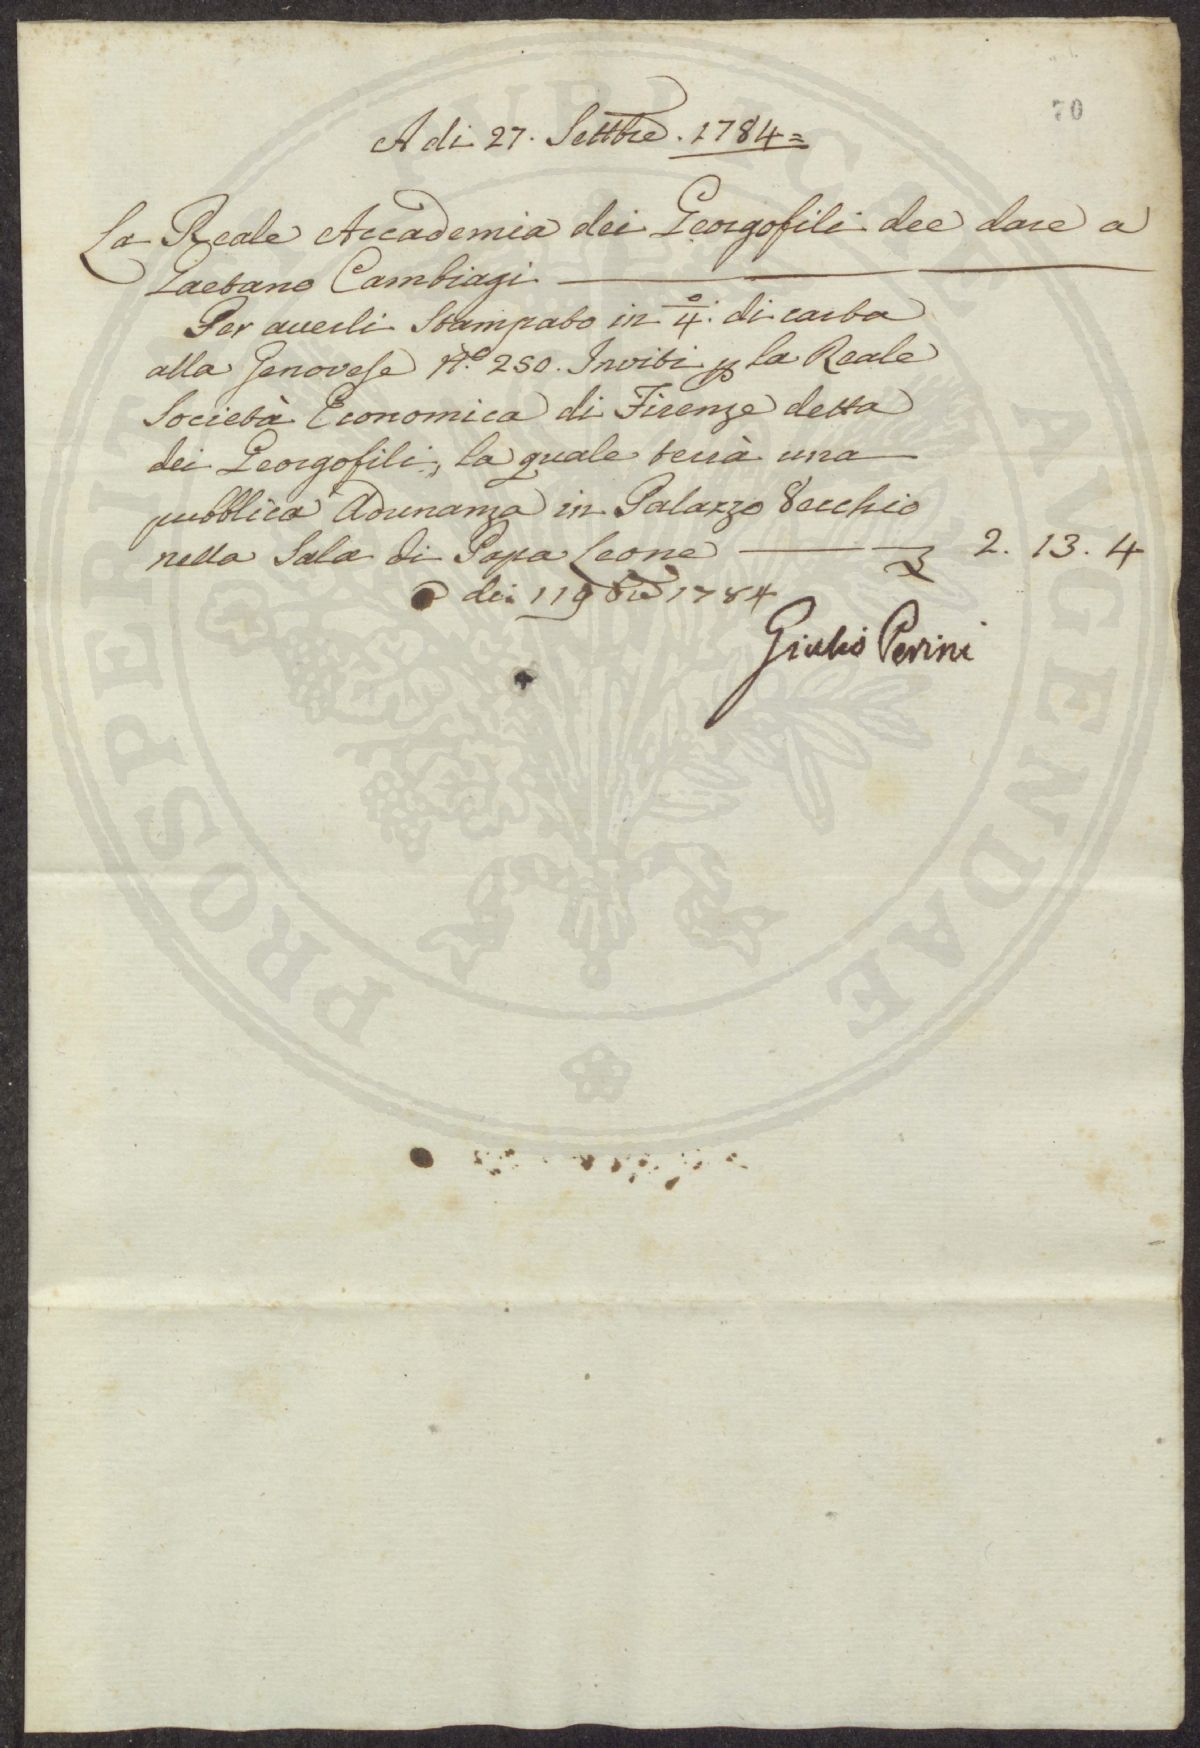 70
A di 27. Settbre. 1784=
La Reale Accademia dei Georgofili dee dare a
Gaetano Cambiagi
Per averli Stampato in 4.º di carta
alla Genovese N.º 250. Inviti p la Reale
Società Economica di Firenze detta
dei Georgofili, la quale terrà una
pubblica Adunanza in Palazzo Vecchio
nella Sala di Papa Leone 2. 13. 4
a di 1784
Giulio Perini
PROSPERITATI PUBLICAE AUGENDAE